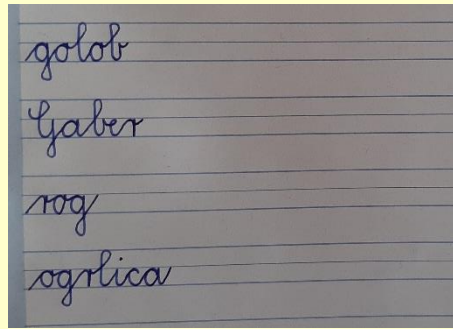 golob
Gaber
rog
ogrlica